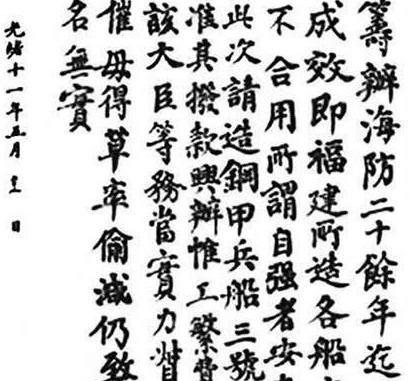 籌辦海防二十餘年迄
成效即福建所造各船
不合用所謂自强者安
此次請造鋼甲兵船三號
准其撥款興辦惟工繁費
該大臣等務當實力督
催毋得草率偷減仍致
名無實
光緒十一年五月 日